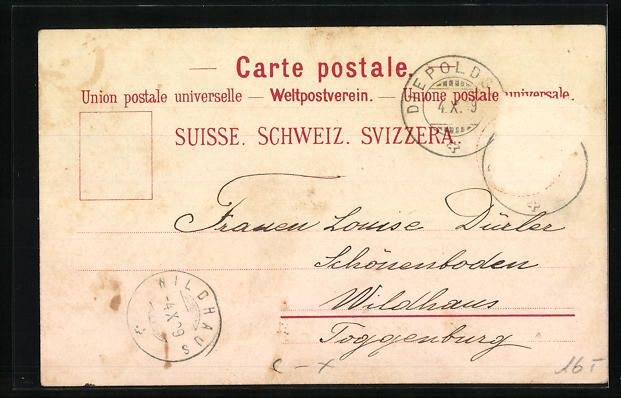 Carte postale.
Union postale universelle — Weltpostverein. — Unione postale universale.
SUISSE. SCHWEIZ. SVIZZERA.
DIEPOLDS
4.X.9
Frauen Louise Dürler
Schönenboden
Wildhaus
Toggenburg
WILDHAUS
-4.X.9
3
C - x
16